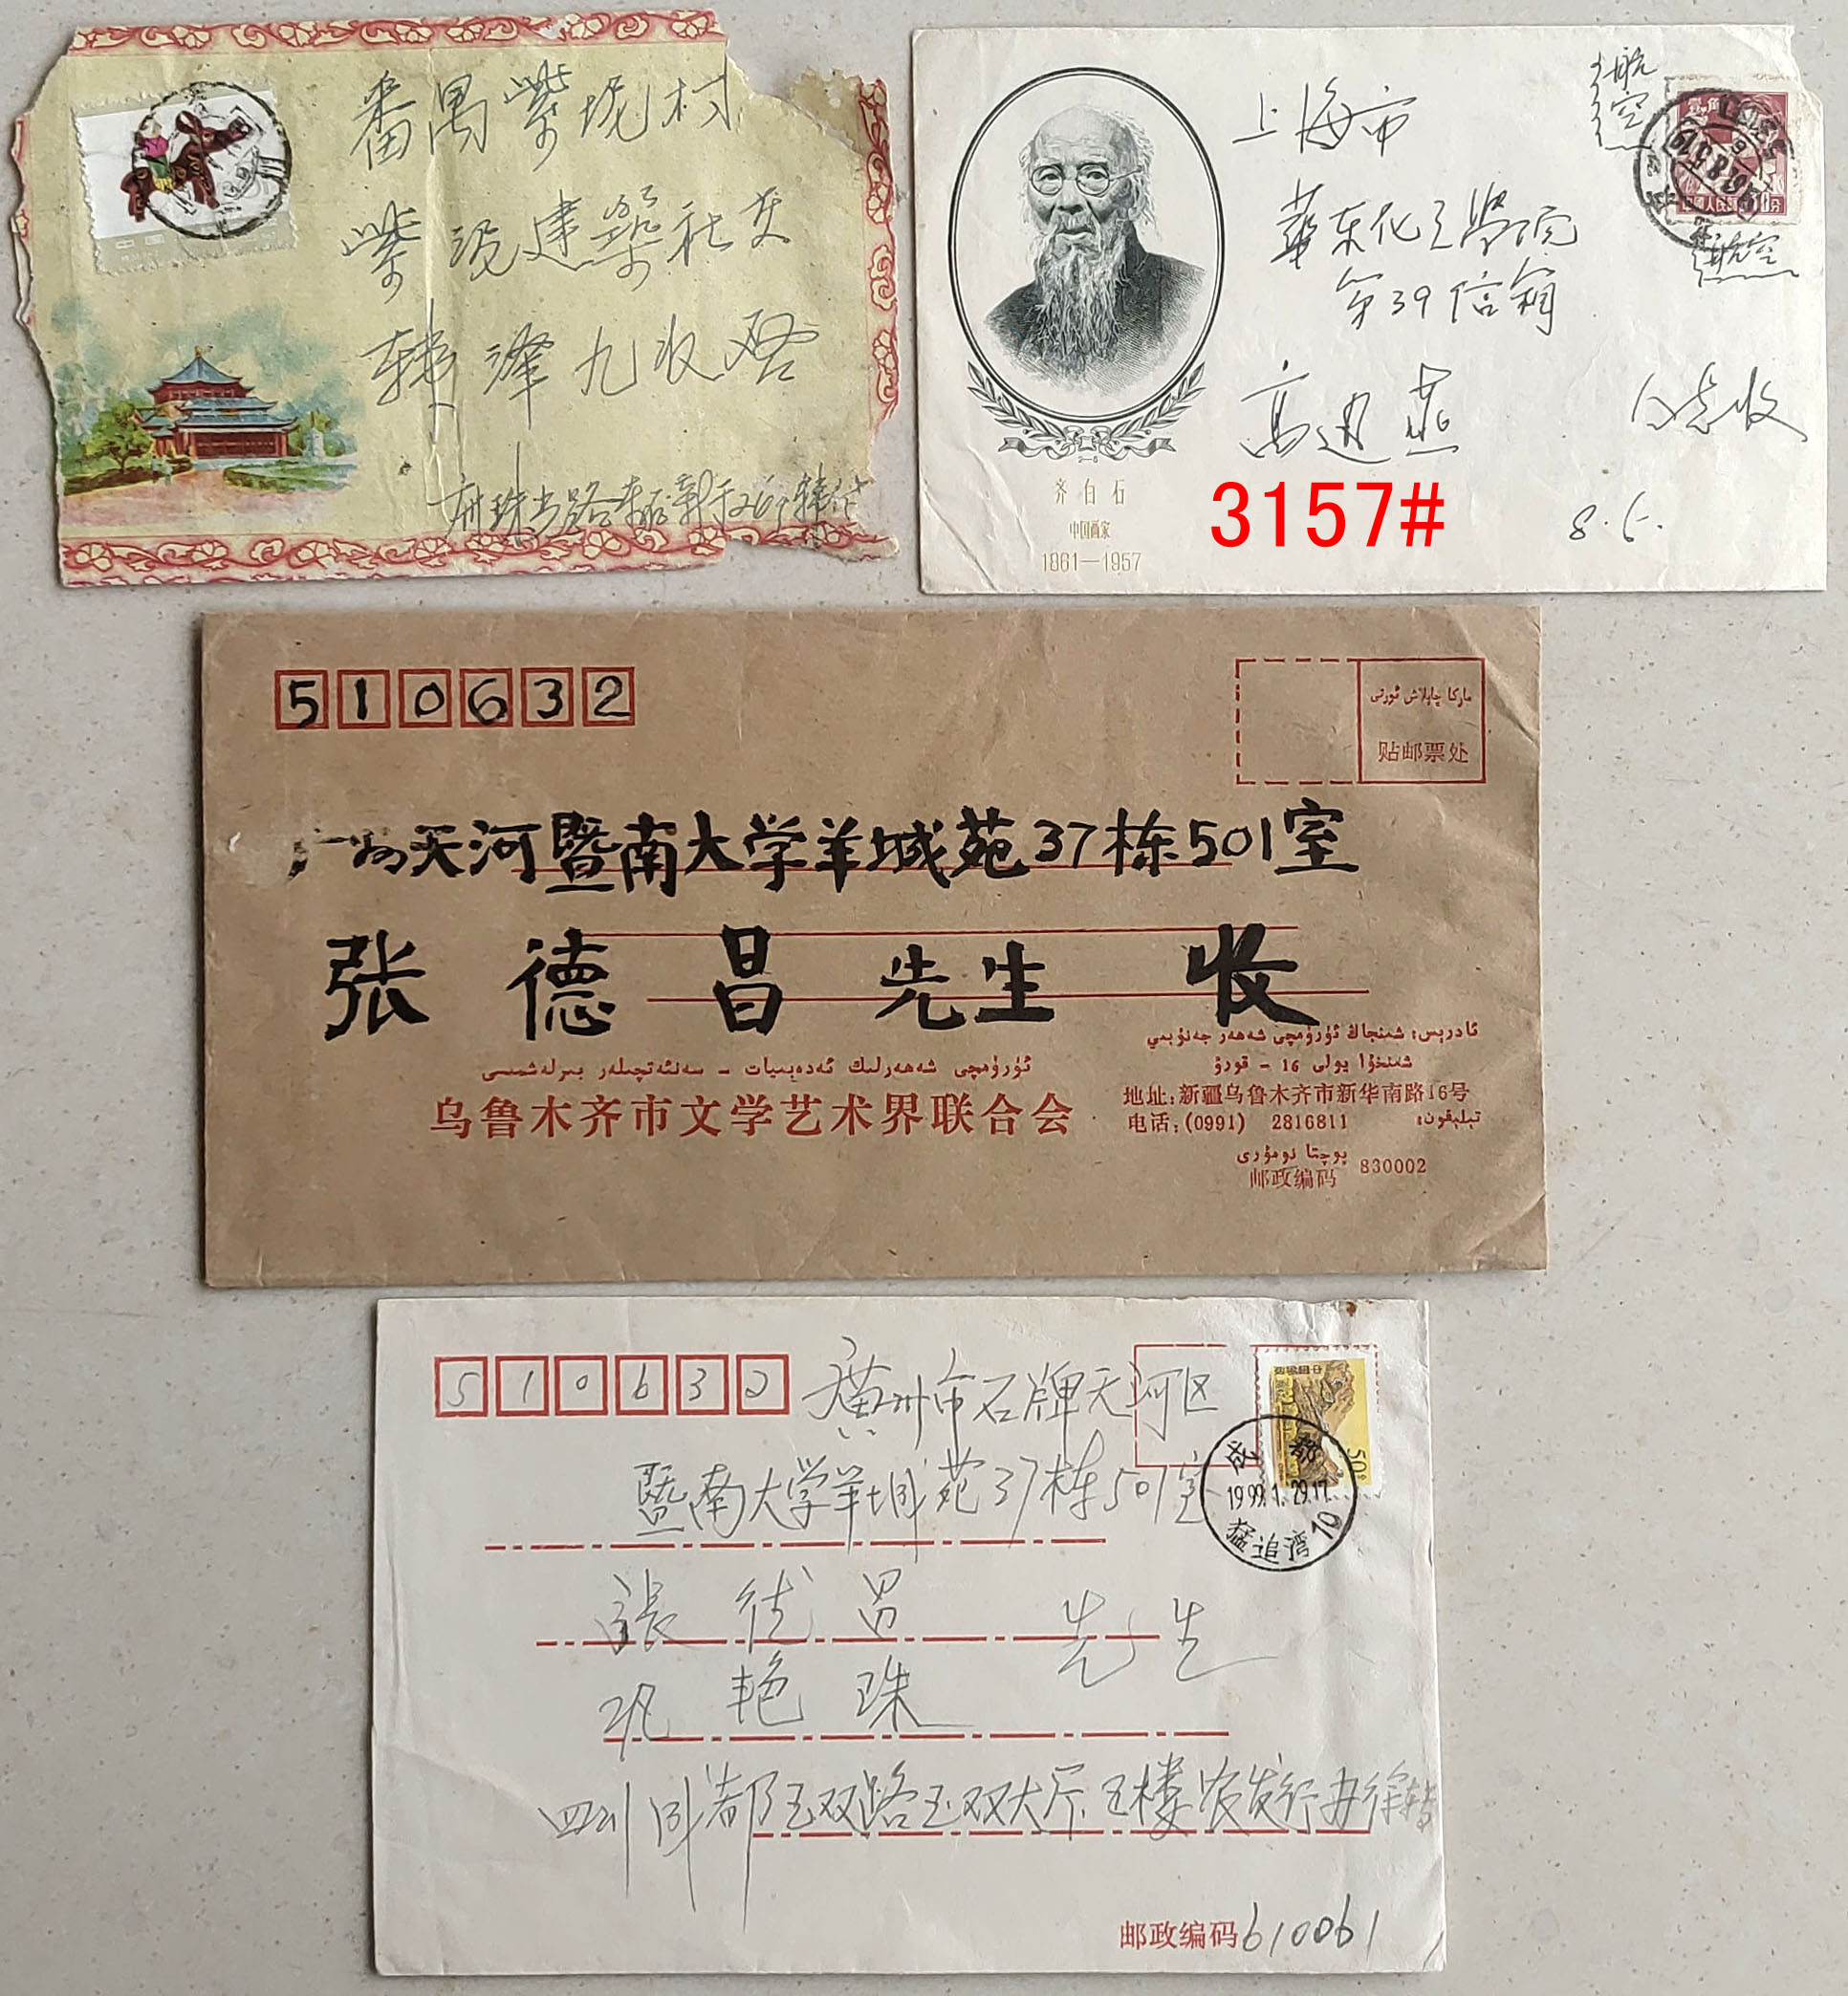 番禺紫坭村
紫坭建築社交
韓澤九收啓
上海市
華东化工學院
第39信箱
高
燕
收
航
空
航空
8.5.
2-5
齐白石
中国画家
1861—1957
3157#
510632
ماركا چاپلاش ئورنى
贴邮票处
广州天河暨南大学羊城苑37栋501室
张德昌先生收
ئۈرۈمچى شەھەرلىك ئەدەبىيات - سەنئەتچىلەر بىرلەشمىسى
乌鲁木齐市文学艺术界联合会
ئادرېس: شىنجاڭ ئۈرۈمچى شەھەر جەنۇبىي
شىنخۇا يولى 16 - قورۇ
地址:新疆乌鲁木齐市新华南路16号
电话:(0991) 2816811 تېلېفون:
پوچتا نومۇرى
邮政编码 830002
510632
廣州市石牌天河区
暨南大学羊城苑37栋501室
張德昌 先生
巩艳珠
四川成都玉双路玉双大厦五楼农发行办徐转
邮政编码610061
50分
成都
1999.1.29.17
猛追湾10